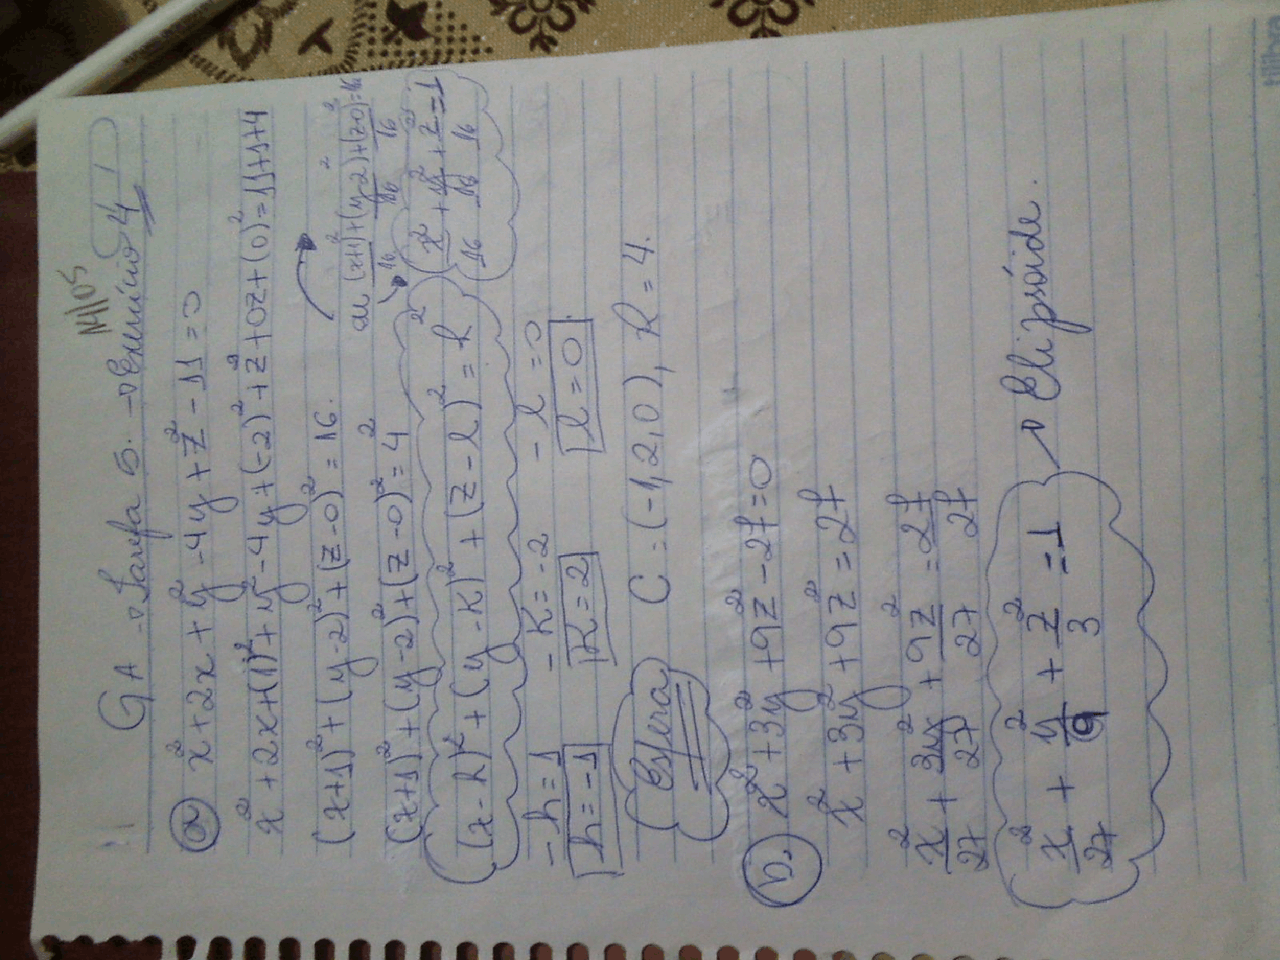 14/05
GA → Tarefa 5. → Exercício 4
a) x² + 2x + y² - 4y + z² - 11 = 0
x² + 2x + (1)² + y² - 4y + (-2)² + z² + 0z + (0)² = 11+1+4
(x+1)² + (y-2)² + (z-0)² = 16.
ou (x+1)²/16 + (y-2)²/16 + (z-0)²/16 = 16
(x+1)² + (y-2)² + (z-0)² = 4²
x²/16 + y²/16 + z²/16 = 1
(x-h)² + (y-k)² + (z-l)² = r²
-h = 1 -k = -2 -l = 0
h = -1 k = 2 l = 0
Esfera C = (-1,2,0), R = 4.
b. x² + 3y² + 9z² - 27 = 0
x² + 3y² + 9z² = 27
x²/27 + 3y²/27 + 9z²/27 = 27/27
x²/27 + y²/9 + z²/3 = 1 → Elipsóide.
tilibra